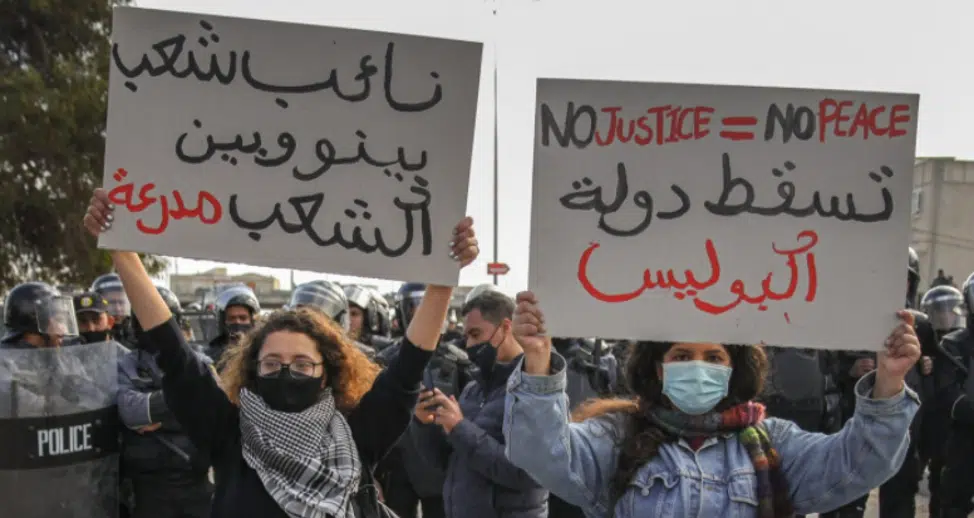 نائب شعب
بينو وبين
الشعب مدرعة
NO JUSTICE = NO PEACE
تسقط دولة
البوليس
POLICE